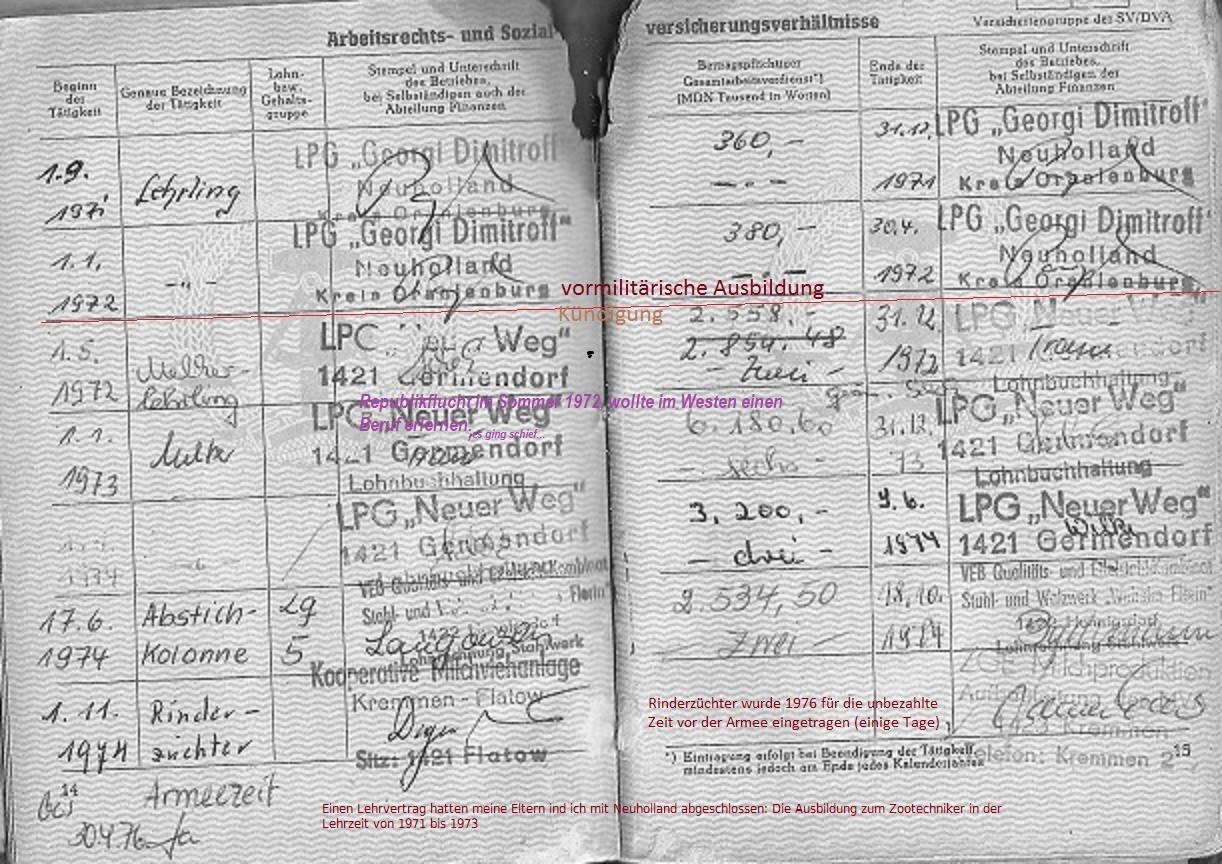 Arbeitsrechts- und Sozial-
versicherungsverhältnisse
Versichertengruppe des SV/DVA
Beginn
der
Tätigkeit
Genaue Bezeichnung
der Tätigkeit
Lohn-
bzw.
Gehalts-
gruppe
Stempel und Unterschrift
des Betriebes,
bei Selbständigen auch der
Abteilung Finanzen
Beitragspflichtiger
Gesamtarbeitsverdienst*)
(MDN Tausend in Worten)
Ende der
Tätigkeit
Stempel und Unterschrift
des Betriebes,
bei Selbständigen der
Abteilung Finanzen
1.9.
1971
Lehrling
LPG „Georgi Dimitroff“
Neuholland
Kreis Oranienburg
360,-
-.-
31.12.
1971
LPG „Georgi Dimitroff“
Neuholland
Kreis Oranienburg
1.1.
1972
-„-
LPG „Georgi Dimitroff“
Neuholland
Kreis Oranienburg
380,-
-.-
30.4.
1972
LPG „Georgi Dimitroff“
Neuholland
Kreis Oranienburg
vormilitärische Ausbildung
Kündigung
1.5.
1972
Melker-
lehrling
Weg“
1421 Germendorf
2.558,-
2.854,48
- Zwei
31.12.
1972
LPG Neuer Weg“
1421
Lohnbuchhaltung
Republikflucht im Sommer 1972, wollte im Westen einen
Beruf erlernen.
es ging schief...
1.1.
1973
Melker
LPG „Neuer Weg“
Germendorf
Lohnbuchhaltung
6.180,60
- sechs -
31.12.
73
LPG „Neuer Weg“
1421 Germendorf
Lohnbuchhaltung
1974
LPG „Neuer Weg“
1421 Germendorf
3.200,-
- drei -
9.6.
1974
LPG „Neuer Weg“
1421 Germendorf
17.6.
1974
Abstich-
Kolonne
5
VEB Qualitäts- und Edelstahl-Kombinat
Stahl- und
2.534,50
- Zwei -
18.10.
1974
VEB Qualitäts- und Edelstahl-Kombinat
Stahl- und Walzwerk „Wilhelm Florin“
1.11.
1974
Rinder-
züchter
Kooperative Milchviehanlage
Kremmen - Flatow
Sitz: 1421 Flatow
Rinderzüchter wurde 1976 für die unbezahlte
Zeit vor der Armee eingetragen (einige Tage)
ZGE Milchproduktion
Kremmen
Telefon: Kremmen 2
*) Eintragung erfolgt bei Beendigung der Tätigkeit,
mindestens jedoch am Ende jedes Kalenderjahres
15
14
Armeezeit
bis
30.4.76
Einen Lehrvertrag hatten meine Eltern ind ich mit Neuholland abgeschlossen: Die Ausbildung zum Zootechniker in der
Lehrzeit von 1971 bis 1973